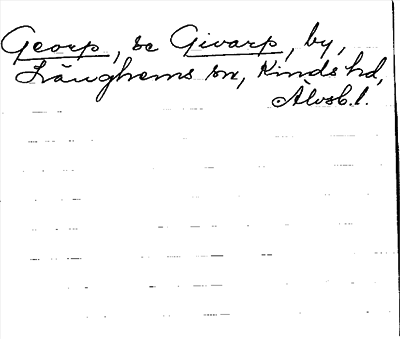 Georp, se Givarp, by,
Länghems sn, Kinds hd,
Älvsb. l.